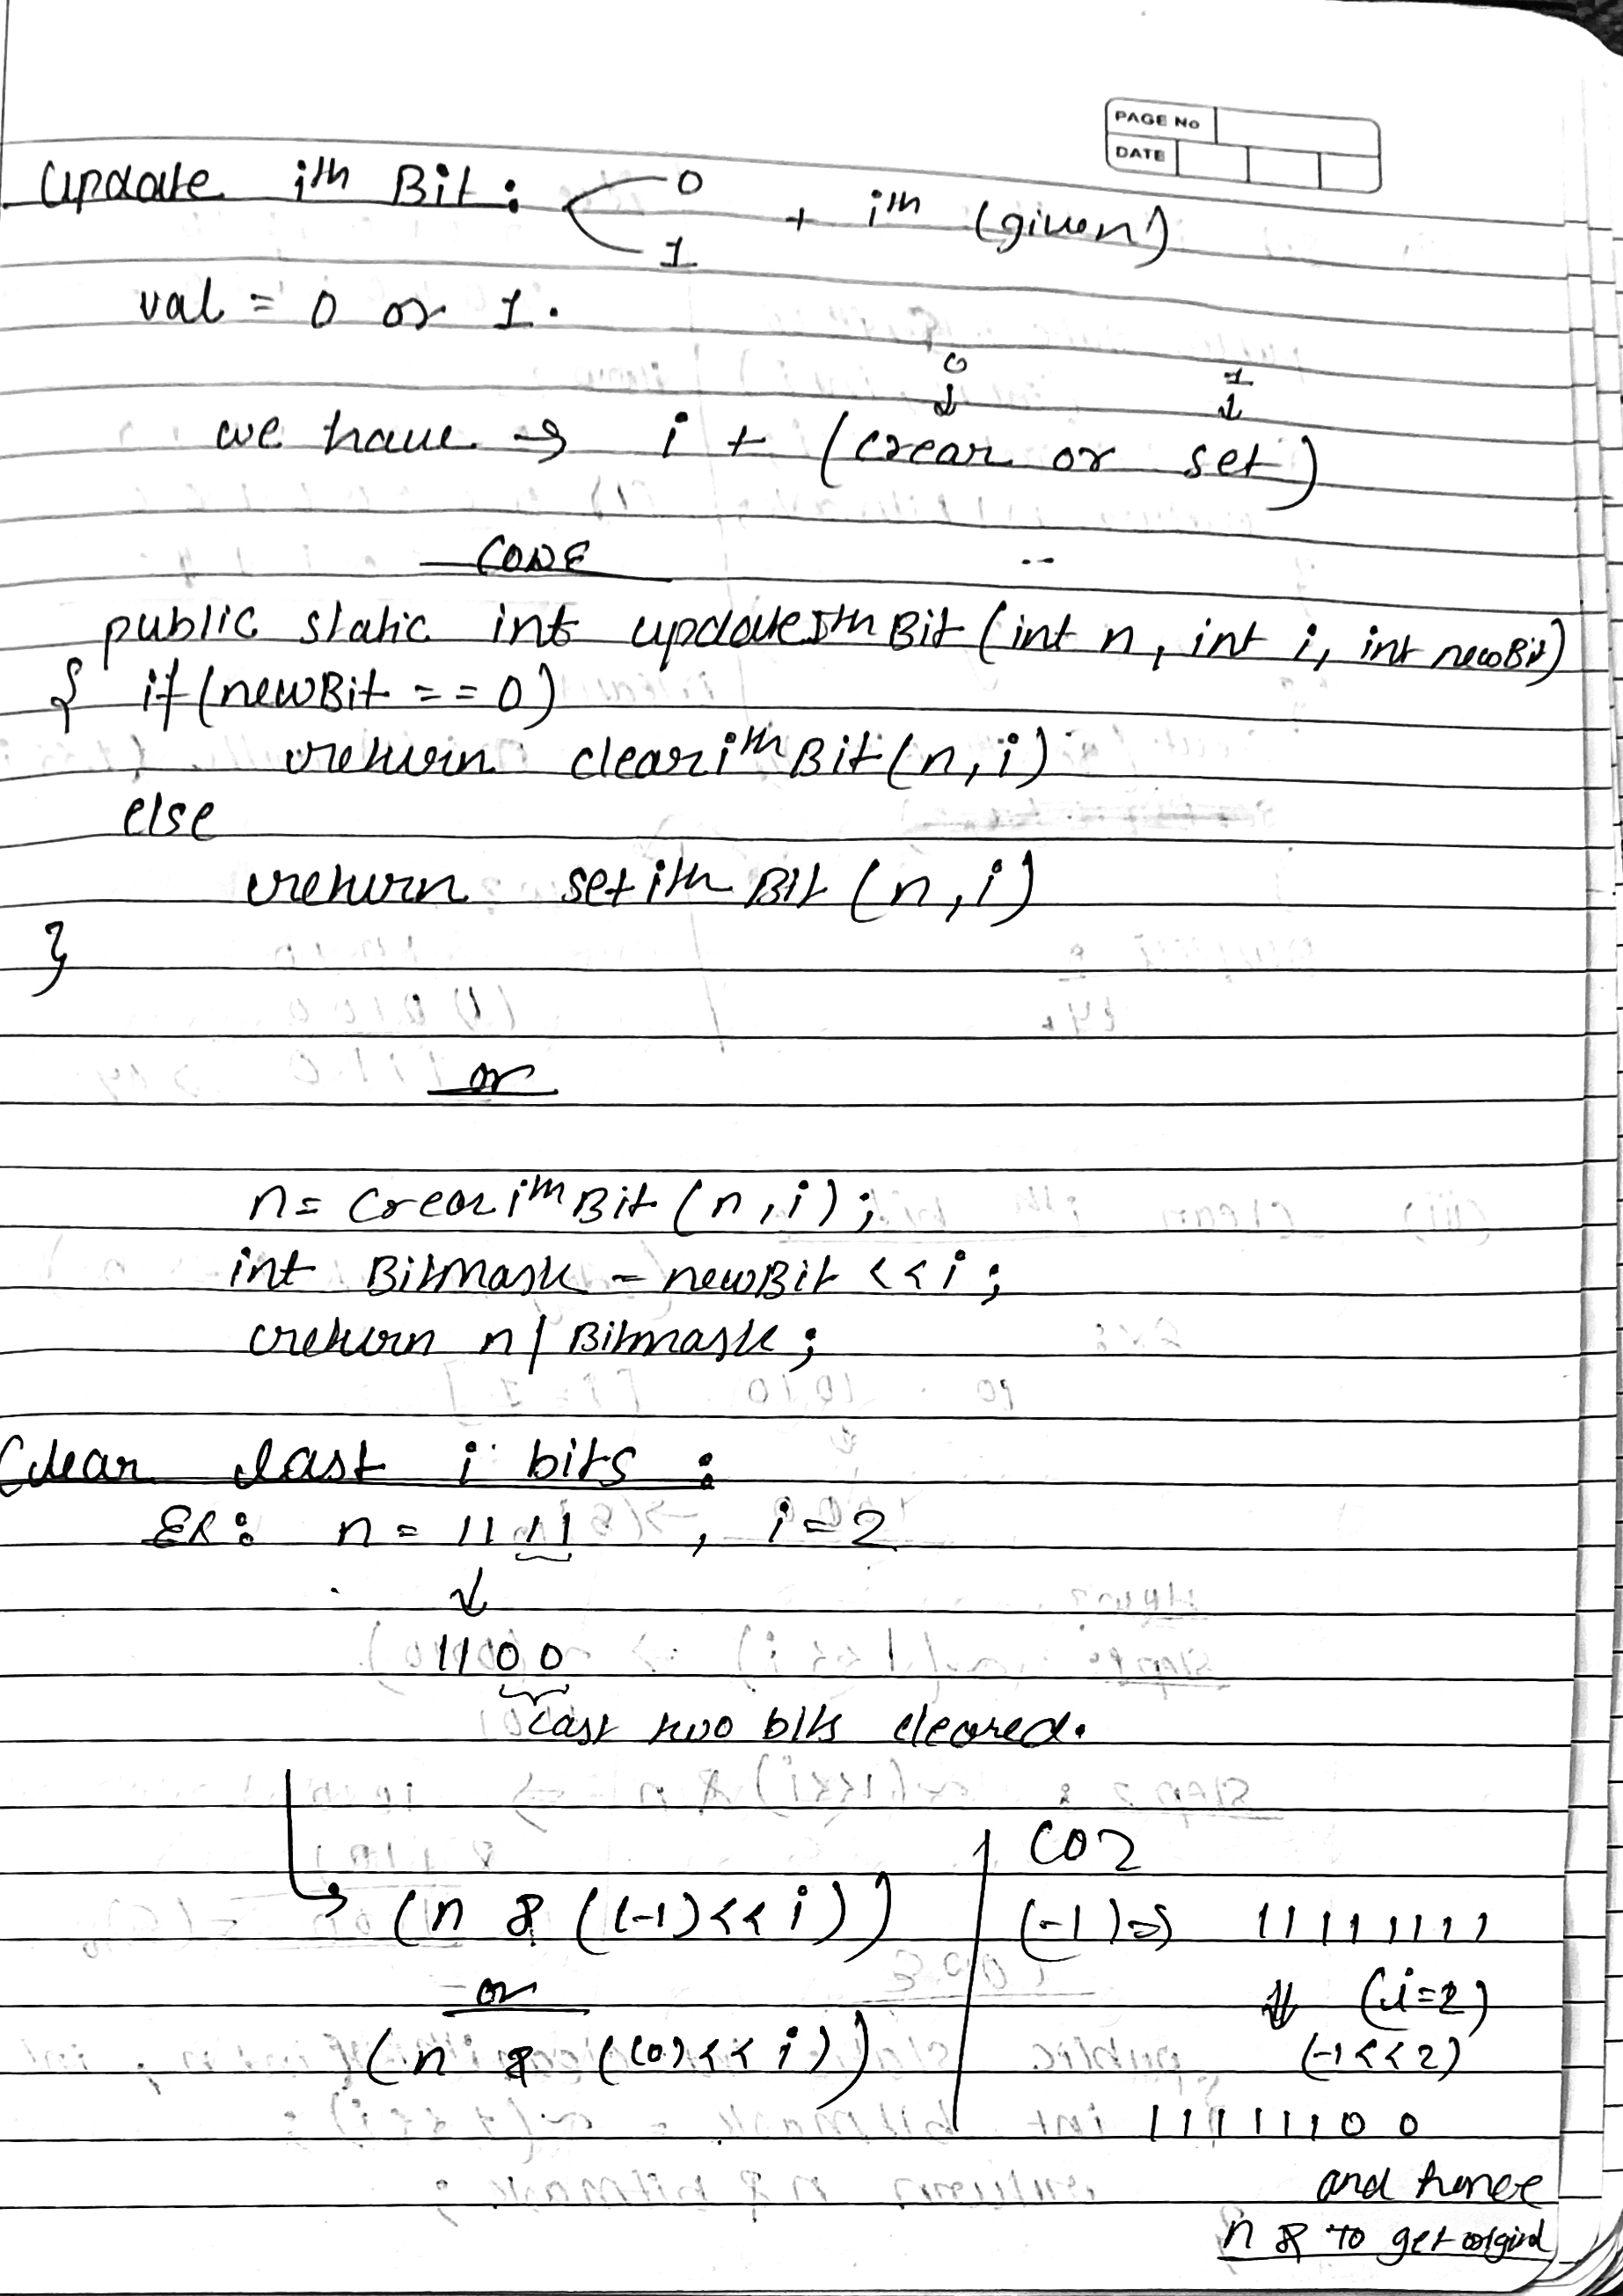 PAGE No
DATE
Update ith Bit : 0
1 + ith (given)
val = 0 or 1.
0 1
we have → i + (clear or set)
CODE
public static int updateIthBit (int n, int i, int newBit)
{ if (newBit == 0)
return clearithBit(n, i)
else
return setithBit (n, i)
}
or
n = clearithBit (n, i);
int BitMask = newBit << i;
return n | Bitmask;
Clear last i bits :
Ex: n = 1111, i = 2
↓
1100
Last two bits cleared.
(n & ((-1)<<i))
or
(n & ((~0)<<i))
(~0)
(-1) ⇒ 11111111
⇓ (i=2)
(-1<<2)
11111100
and hence
n & to get